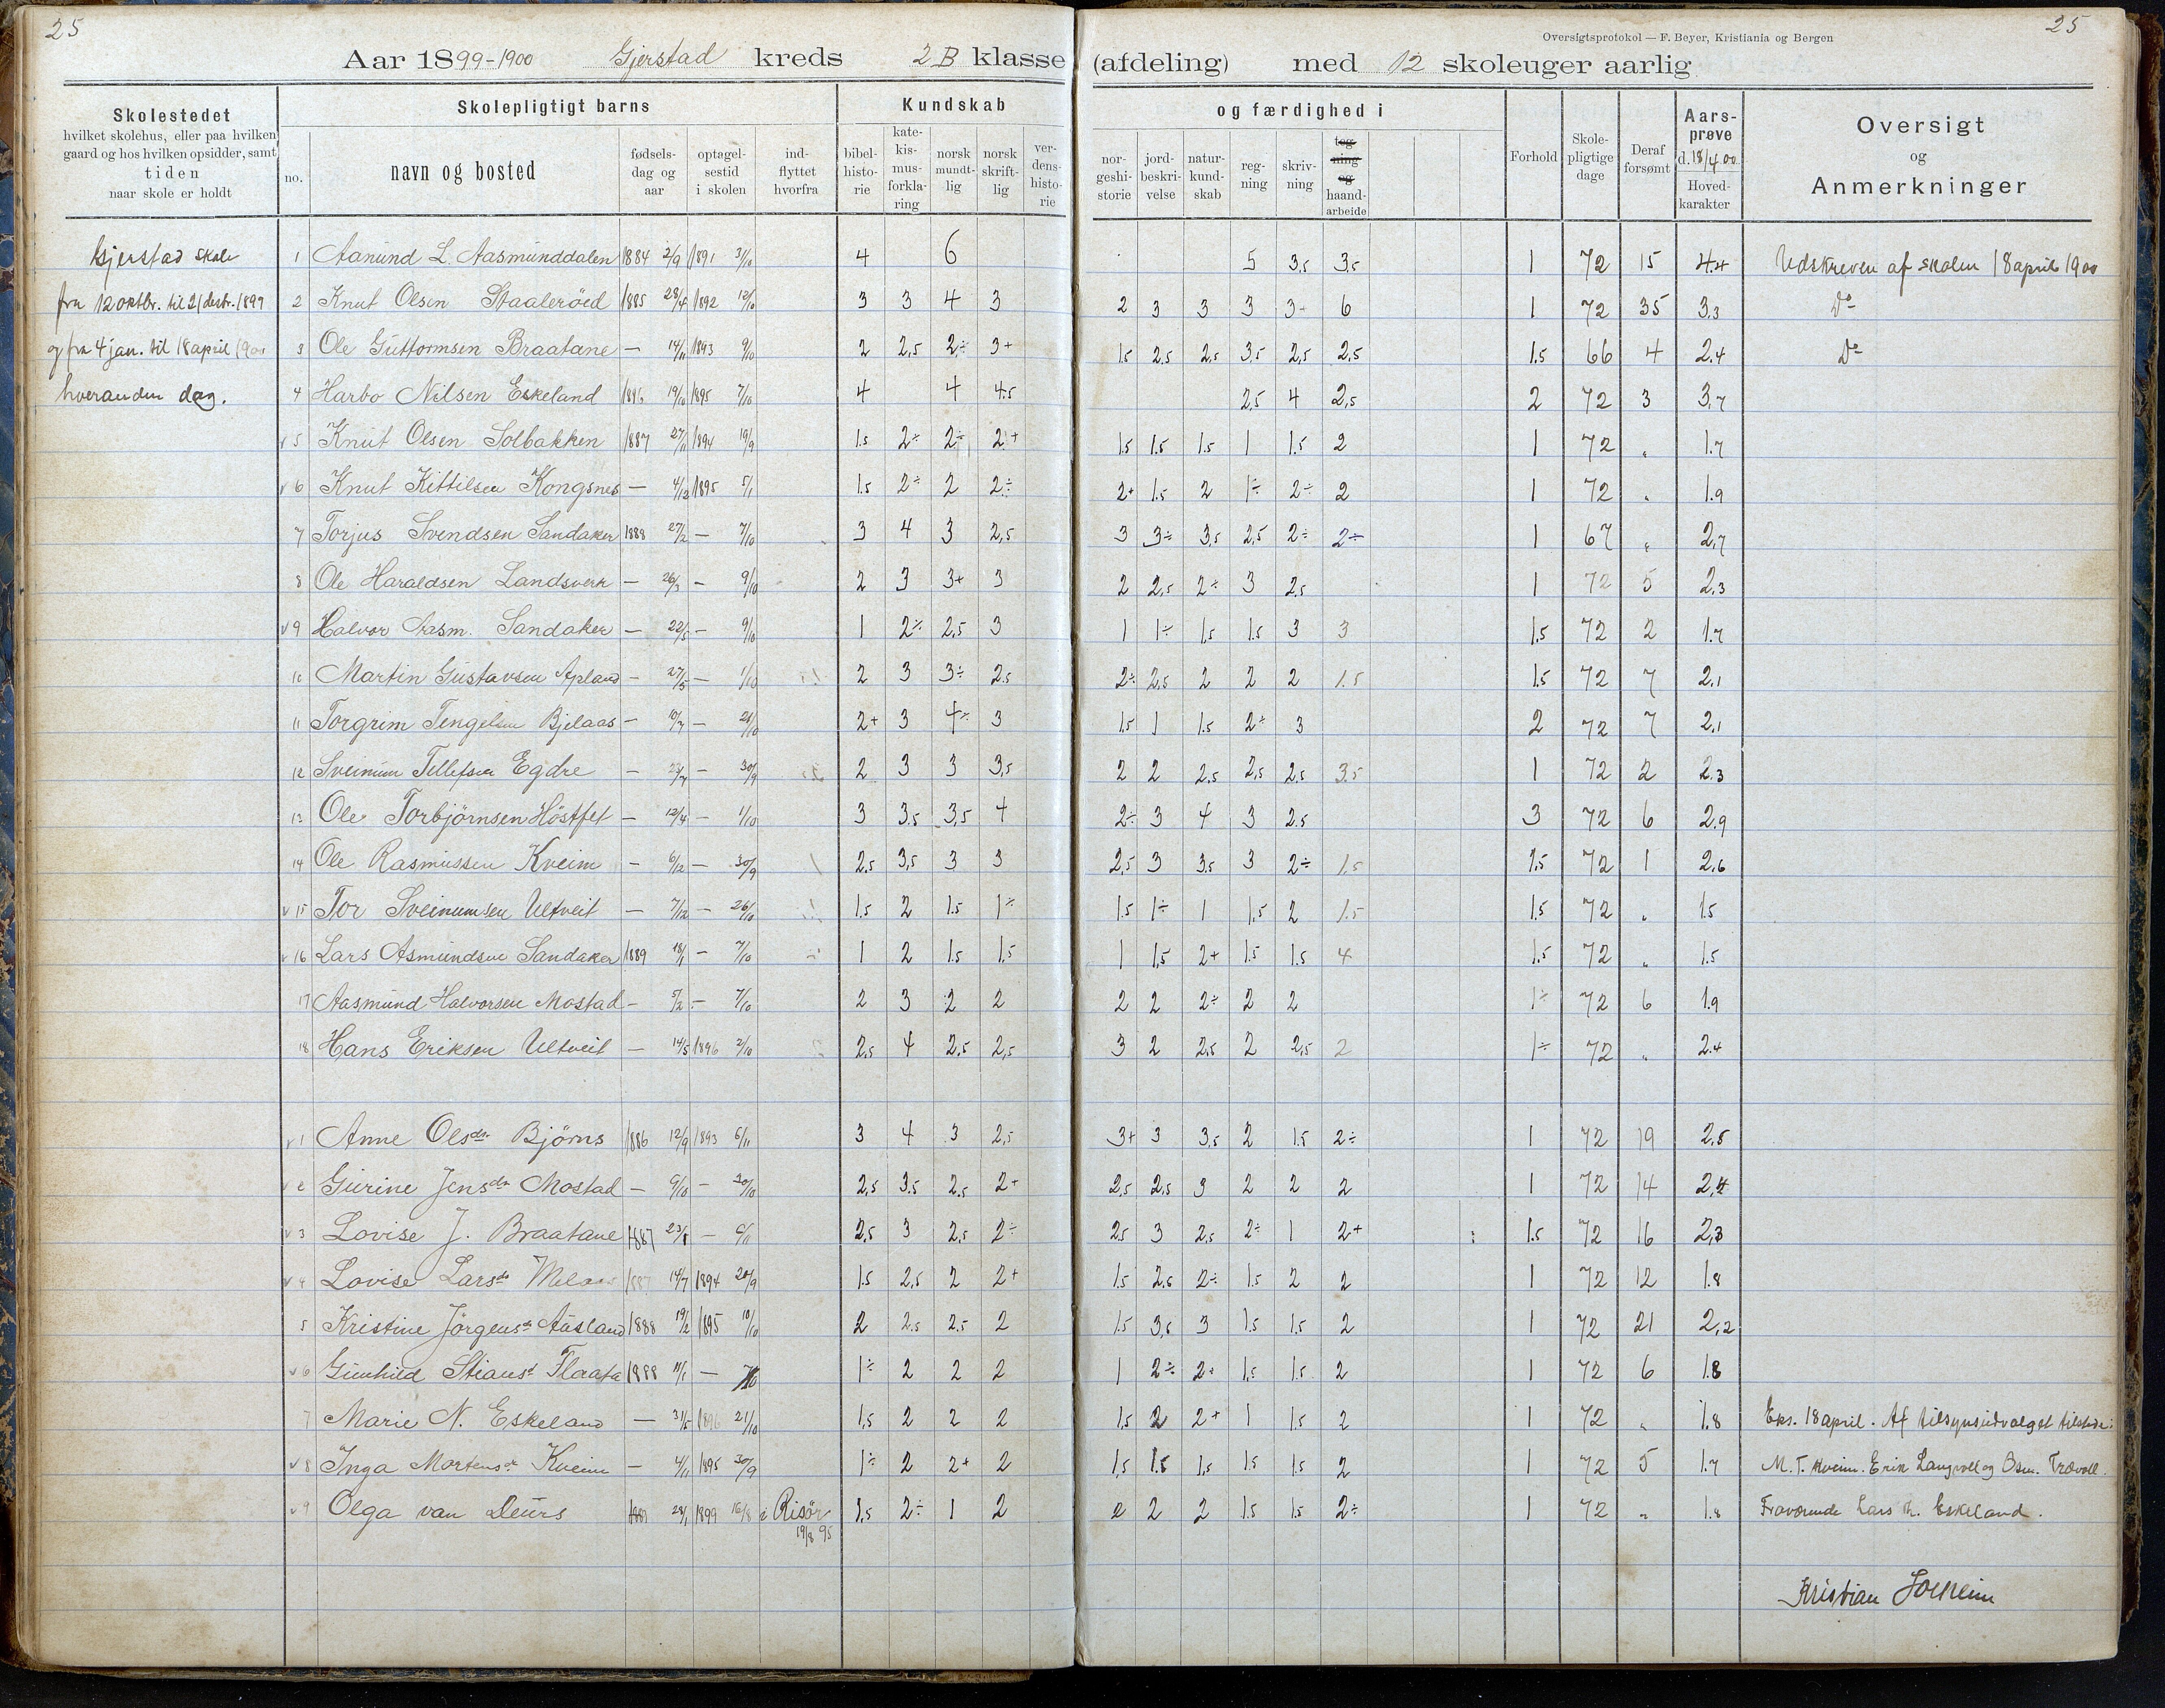 25
25
Oversigtsprotokol — F. Beyer, Kristiania og Bergen
Aar 1899-1900 Gjerstad kreds 2 B klasse (afdeling) med 12 skoleuger aarlig
Skolestedet
hvilket skolehus, eller paa hvilken
gaard og hos hvilken opsidder, samt
tiden
naar skole er holdt
Skolepligtigt barns
no. navn og bosted
fødsels-dag og aar
optagel-sestid i skolen
ind-flyttet hvorfra
Kundskab og færdighed i
bibel-histo-rie
kate-kis-mus-forkla-ring
norsk mundt-lig
norsk skrift-lig
ver-dens-histo-rie
nor-geshi-storie
jord-beskri-velse
natur-kund-skab
reg-ning
skriv-ning
teg-ning og haand-arbeide
Forhold
Skole-pligtige dage
Deraf forsømt
Aars-prøve d. 18/4 00
Hoved-karakter
Oversigt
og
Anmerkninger
Gjerstad skole
fra 12 oktbr. til 21 desbr. 1899
og fra 4 jan. til 18 april 1900
hveranden dag.
1 Aanund L. Aasmunddalen 1884 2/9 1891 31/10 4 6 5 3,5 3,5 1 72 15 4.4 Udskreven af skolen 18 april 1900
2 Knut Olsen Staaleröed 1885 28/4 1892 12/10 3 3 4 3 2 3 3 3 3+ 6 1 72 35 3,3 Do
3 Ole Guttormsen Braatane — 14/11 1893 9/10 2 2,5 2÷ 3+ 1.5 2,5 2,5 3,5 2,5 2,5 1.5 66 4 2.4 Do
4 Harbo Nilsen Eskeland 19/10 1895 7/10 4 4 4.5 2,5 4 2,5 2 72 3 3,7
v 5 Knut Olsen Solbakken 1887 27/11 1894 19/9 1.5 2÷ 2÷ 2+ 1.5 1.5 1.5 1 1.5 2 1 72 „ 1.7
v 6 Knut Kittilsen Kongsnes — 4/12 1895 5/1 1.5 2÷ 2 2÷ 2+ 1.5 2 1÷ 2÷ 2 1 72 „ 1.9
7 Torjus Svendsen Sandaker 1888 27/2 — 7/10 3 4 3 2,5 3 3÷ 3,5 2,5 2÷ 2÷ 1 67 „ 2,7
8 Ole Haraldsen Landsverk — 26/3 — 9/10 2 3 3+ 3 2 2,5 2÷ 3 2,5 1 72 5 2,3
v 9 Halvor Aasm. Sandaker — 22/5 — 9/10 1 2÷ 2,5 3 1 1÷ 1,5 1.5 3 3 1.5 72 2 1.7
10 Martin Gustavsen Apland — 27/5 — 1/10 2 3 3÷ 2.5 2÷ 2,5 2 2 2 1.5 1.5 72 7 2,1
11 Torgrim Tengelsen Bjelaas — 10/7 — 2+ 3 4÷ 3 1.5 1 1.5 2÷ 3 2 72 7 2,1
12 Sveinum Tellefsen Egdre — — 30/9 2 3 3 3,5 2 2 2,5 2,5 2,5 3.5 1 72 2 2.3
13 Ole Torbjörnsen Höstfet — 12/4 — 1/10 3 3.5 3,5 4 2÷ 3 4 3 2.5 3 72 6 2.9
14 Ole Rasmussen Kveim — 6/12 — 30/9 2.5 3,5 3 3 2,5 3 3.5 3 2÷ 1.5 1.5 72 1 2,6
v 15 Tor Sveinumsen Ultveit — 7/12 — 26/10 1.5 2 1.5 1÷ 1.5 1÷ 1 1.5 2 1.5 1.5 72 „ 1.5
v 16 Lars Asmundsen Sandaker 1889 18/1 — 7/10 1 2 1.5 1,5 1 1,5 2+ 1.5 1.5 4 1.5 72 „ 1.5
17 Aasmund Halvorsen Mostad — 5/2 — 7/10 2 3 2 2 2 2 2÷ 2 2 1÷ 72 6 1.9
18 Hans Eriksen Ultveit — 14/5 1896 2/10 2.5 4 2.5 2,5 3 2 2,5 2 2,5 2 1÷ 72 „ 2.4
v 1 Anne Olsdr. Björns 1886 12/9 1893 6/11 3 4 3 2,5 3+ 3 3,5 2 1.5 2÷ 1 72 19 2,5
v 2 Gurine Jensdr Mostad — 9/10 — 30/10 2,5 3.5 2.5 2+ 2,5 2,5 3 2 2 2 1 72 14 2,4
v 3 Lovise J. Braatane 1887 23/8 — 6/11 2,5 3 2,5 2÷ 2.5 3 2,5 2÷ 1 2+ 1.5 72 16 2,3
v 4 Lovise Larsdr Melaas 1887 14/7 1894 20/9 1.5 2,5 2 2+ 1.5 2.5 2÷ 1.5 2 2 1 72 12 1.8
5 Kristine Jörgensd. Ausland 1888 19/2 1895 10/10 2 2.5 2.5 2 1.5 3,5 3 1.5 1,5 2 1 72 21 2,2
v 6 Gunhild Stiansd Flaata 1888 11/1 — 7/10 1÷ 2 2 2 1 2÷ 2+ 1,5 1.5 2 1 72 6 1.8
7 Marie N. Eskeland — 31/5 1896 21/10 1,5 2 2 2 1.5 2 2+ 1 1.5 2 1 72 „ 1.8 Eks. 18 april. Af tilsynsudvalget tilstede:
v 8 Inga Mortensdr Kveim — 4/11 1895 30/9 1÷ 2 2+ 2 1,5 1.5 1,5 1,5 1.5 2 1 72 5 1.7 M. T. Kveim. Erik Langvoll og Osm. Trævoll.
v 9 Olga van Deurs 28/1 1899 16/8 i Risör 19/8 95 1,5 2÷ 1 2 2 2 1.5 1.5 2÷ 1 72 „ 1.8 Fraværende Lars N. Eskeland.
Kristian Solheim